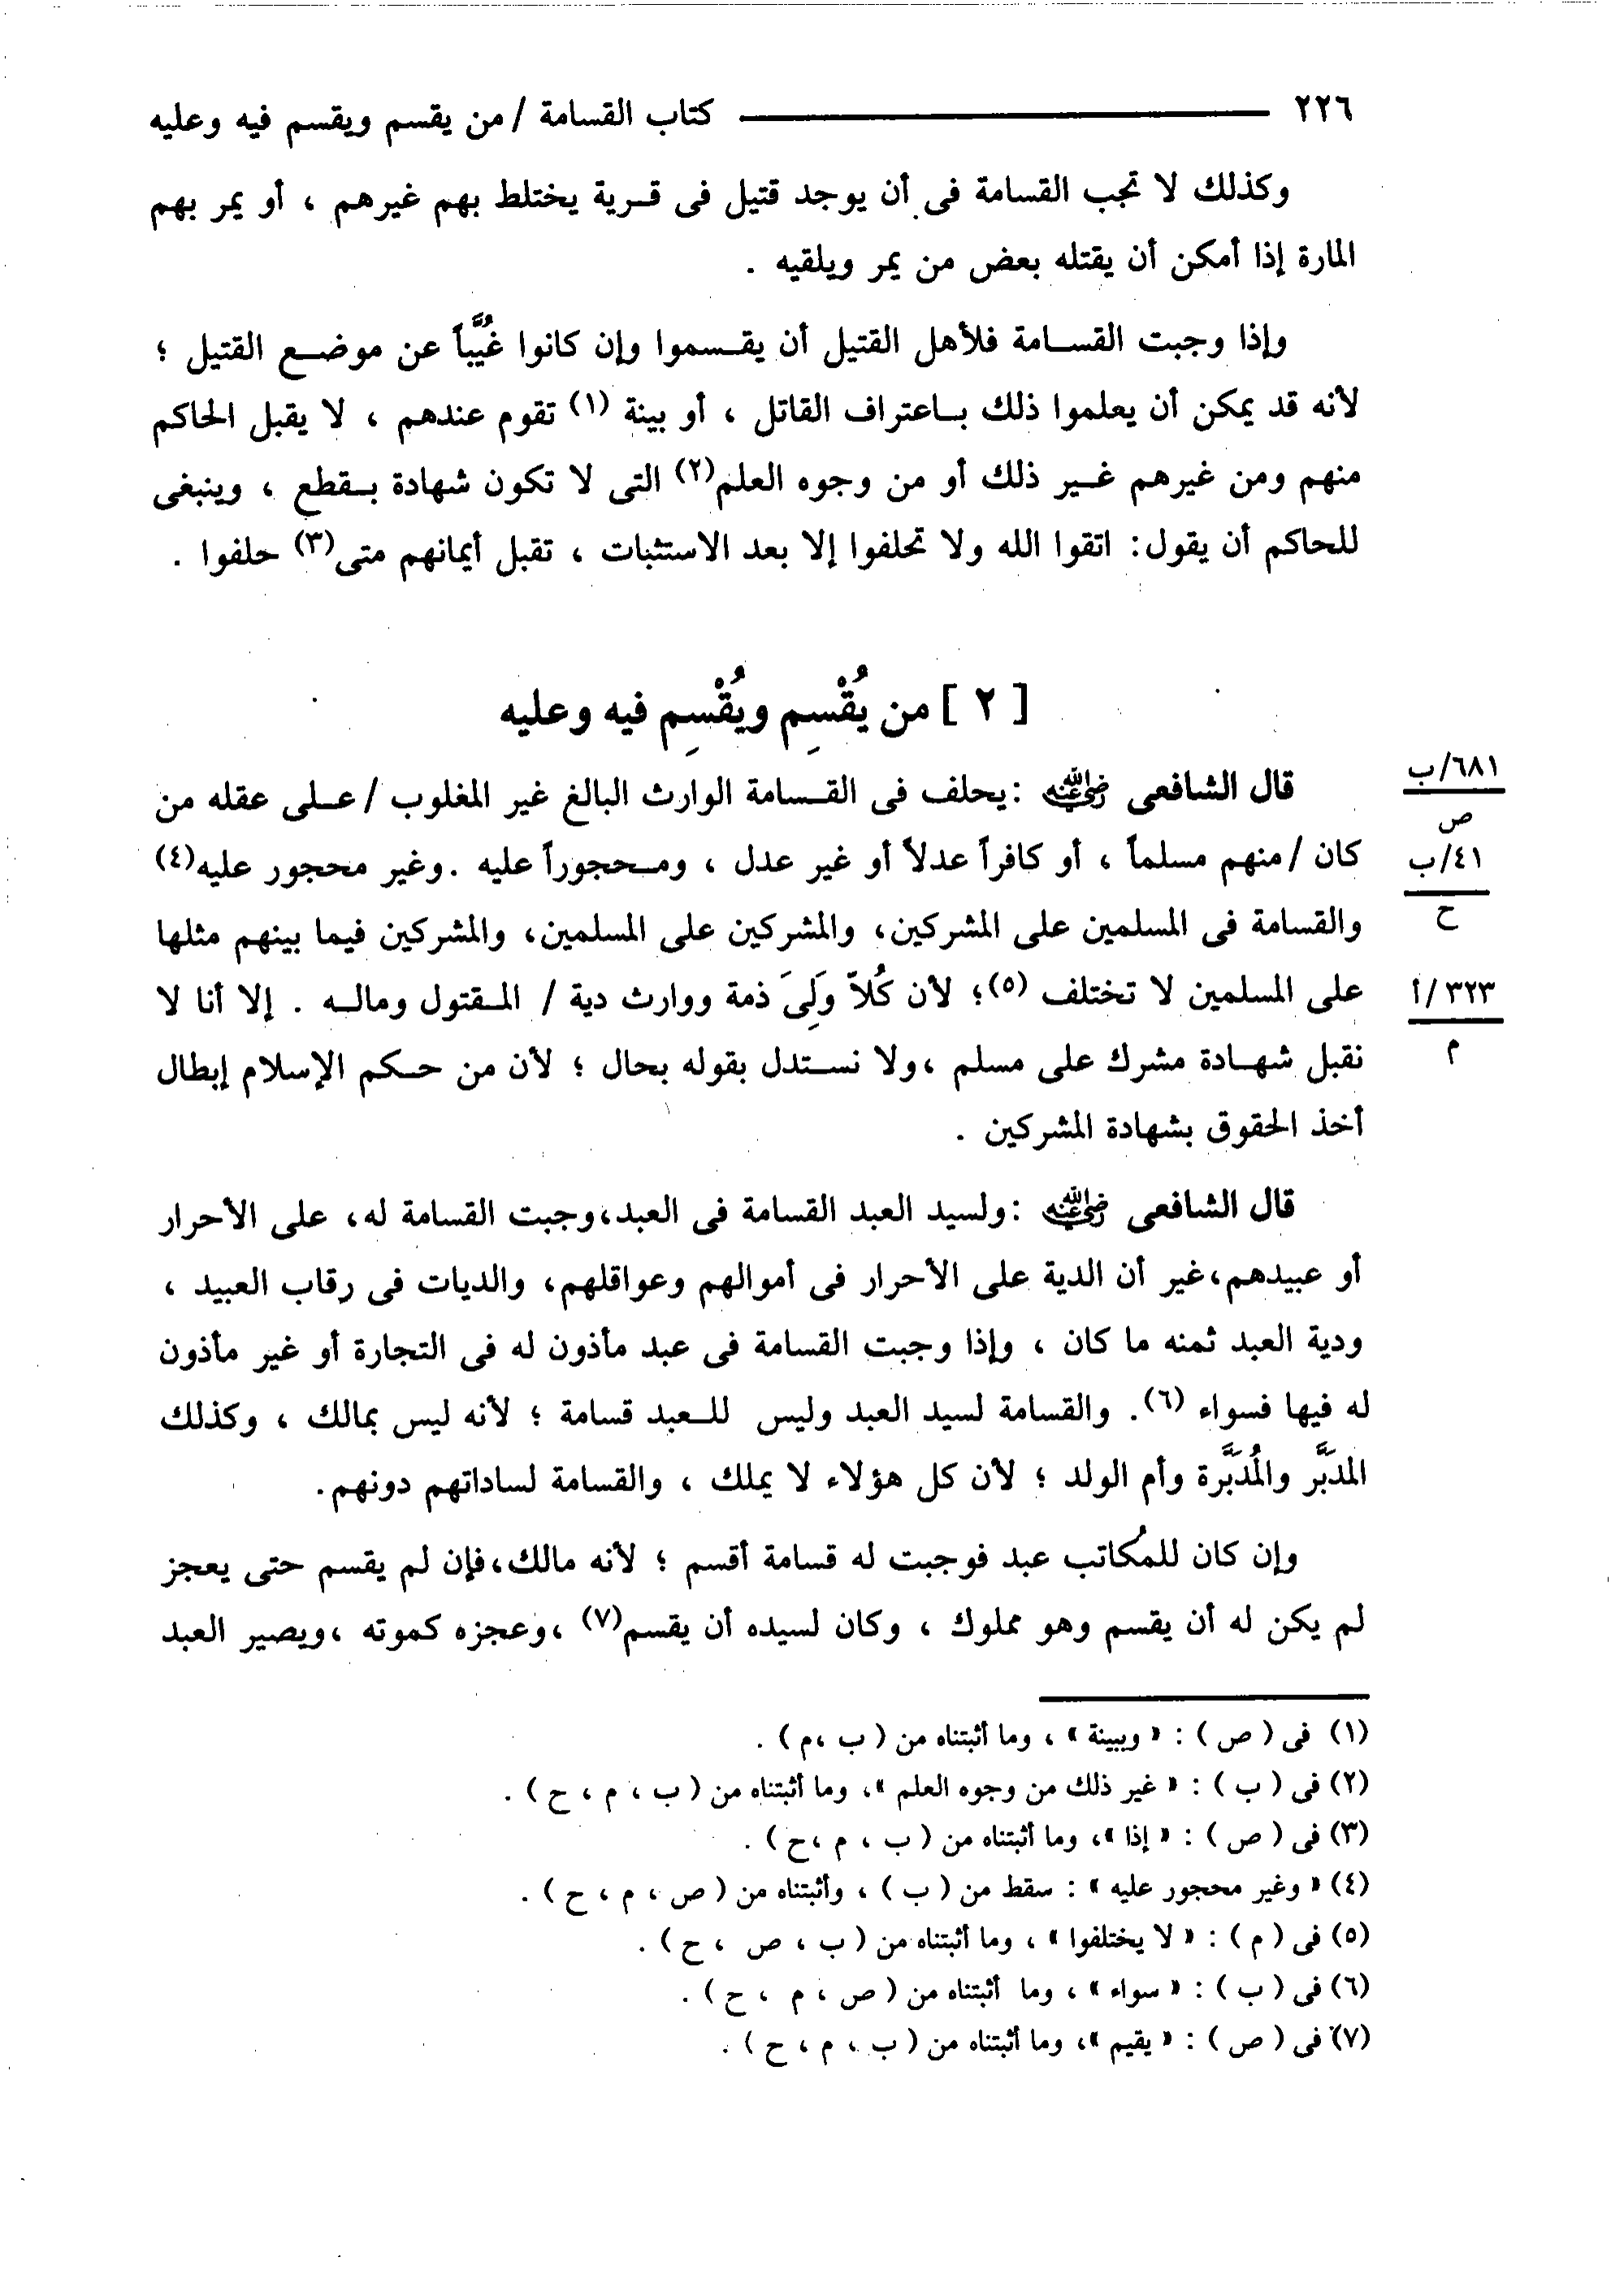 ٢٢٦ ـــــــــــــ كتاب القسامة / من يقسم ويقسم فيه وعليه
وكذلك لا تجب القسامة فى أن يوجد قتيل فى قـرية يختلط بهم غيرهم ، أو يمر بهم
المارة إذا أمكن أن يقتله بعض من يمر ويلقيه .
وإذا وجبت القســامة فلأهل القتيل أن يقـسموا وإن كانوا غُيَّباً عن موضـع القتيل ؛
لأنه قد يمكن أن يعلموا ذلك بـاعتراف القاتل ، أو بينة (١) تقوم عندهم ، لا يقبل الحاكم
منهم ومن غيرهم غـير ذلك أو من وجوه العلم(٢) التى لا تكون شهادة بـقطع ، وينبغى
للحاكم أن يقول: اتقوا الله ولا تحلفوا إلا بعد الاستثبات ، تقبل أيمانهم متى(٣) حلفوا .
[ ٢ ] من يُقْسِم ويُقْسِم فيه وعليه
قال الشافعى رضي الله عنه : يحلف فى القـسامة الوارث البالغ غير المغلوب / عـلى عقله من
٦٨١/ب
ص
كان / منهم مسلماً ، أو كافراً عدلاً أو غير عدل ، ومـحجوراً عليه . وغير محجور عليه(٤)
٤١/ب
ح
والقسامة فى المسلمين على المشركين، والمشركين على المسلمين، والمشركين فيما بينهم مثلها
على المسلمين لا تختلف (٥)؛ لأن كُلاّ وَلِىَ ذمة ووارث دية / المـقتول ومالـه . إلا أنا لا
٣٢٣/أ
م
نقبل شهـادة مشرك على مسلم ، ولا نسـتدل بقوله بحال ؛ لأن من حـكم الإسلام إبطال
أخذ الحقوق بشهادة المشركين .
قال الشافعى رضي الله عنه : ولسيد العبد القسامة فى العبد، وجبت القسامة له، على الأحرار
أو عبيدهم، غير أن الدية على الأحرار فى أموالهم وعواقلهم، والديات فى رقاب العبيد ،
ودية العبد ثمنه ما كان ، وإذا وجبت القسامة فى عبد مأذون له فى التجارة أو غير مأذون
له فيها فسواء (٦). والقسامة لسيد العبد وليس للـعبد قسامة ؛ لأنه ليس بمالك ، وكذلك
المدَبَّر والمُدَبَّرة وأم الولد ؛ لأن كل هؤلاء لا يملك ، والقسامة لساداتهم دونهم.
وإن كان للمُكاتب عبد فوجبت له قسامة أقسم ؛ لأنه مالك، فإن لم يقسم حتى يعجز
لم يكن له أن يقسم وهو مملوك ، وكان لسيده أن يقسم(٧) ، وعجزه كموته ، ويصير العبد
(١) فى ( ص ) : « وببينة » ، وما أثبتناه من ( ب ،م ) .
(٢) فى ( ب ) : « غير ذلك من وجوه العلم »، وما أثبتناه من ( ب ، م ، ح ) .
(٣) فى ( ص ) : « إذا »، وما أثبتناه من ( ب ، م ،ح ) .
(٤) « وغير محجور عليه » : سقط من ( ب ) ، وأثبتناه من ( ص ، م ، ح ) .
(٥) فى ( م ) : « لا يختلفوا » ، وما أثبتناه من ( ب ، ص ، ح ) .
(٦) فى ( ب ) : « سواء » ، وما أثبتناه من ( ص ، م ، ح ) .
(٧) فى ( ص ) : « يقيم »، وما أثبتناه من ( ب ، م ، ح ) .